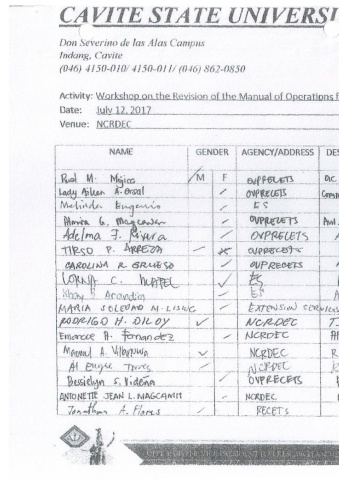 CAVITE STATE UNIVERSI
Don Severino de las Alas Campus
Indang, Cavite
(046) 4150-010/ 4150-011/ (046) 862-0850
Activity: Workshop on the Revision of the Manual of Operations f
Date: July 12, 2017
Venue: NCRDEC
NAME GENDER AGENCY/ADDRESS DES
M. Mojica M F OVPRECETS
Lady Aileen A. Orsal OVPRECETS
Melinda Eugenio ES
G. Magcawas OVPRECETS
Adelma J. Rivera OVPRECETS
TIRSO P. ARREZA OVPRECETS
CAROLINA R. ERUESO OVPRECETS
LORNA C. ES
Arandia ES
MARIA SOLEDAD M. LISING EXTENSION SERVICES
RODRIGO H. DILOY NCRDEC
Emarcee A. Fernandez NCRDEC
A. Villanueva NCRDEC
Torres NCRDEC
Bessielyn S. Videña OVPRECETS
ANTONETTE JEAN L. MAGCAMIT NCRDEC
Jonathan A. Flores RECETS